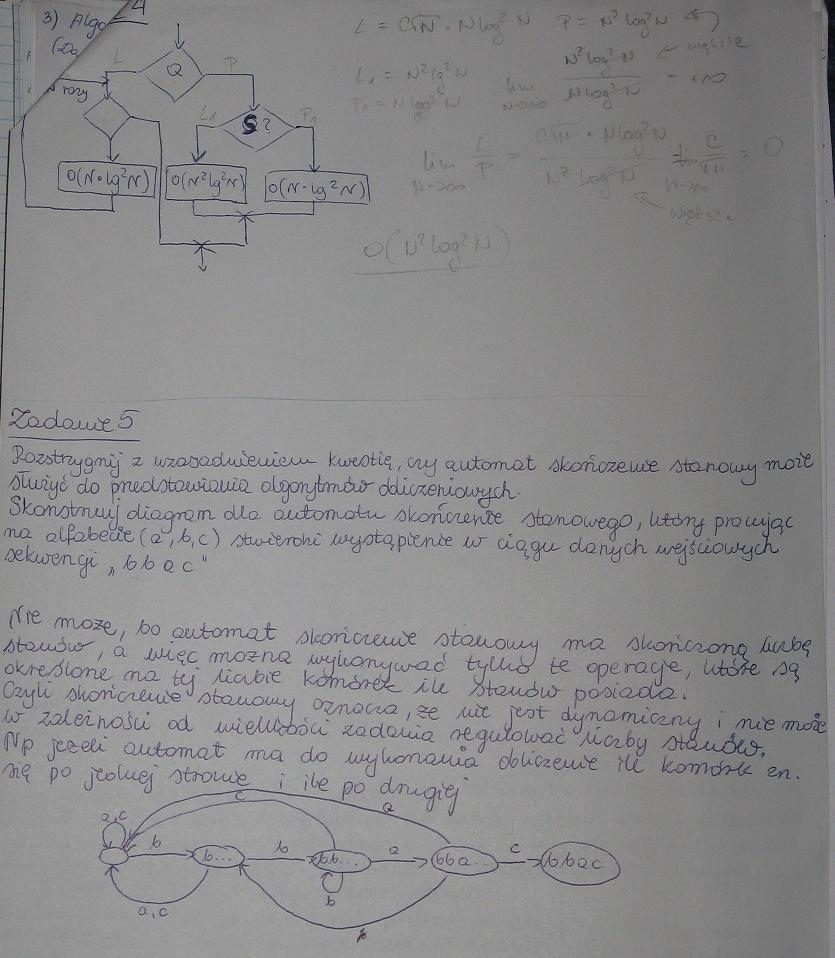 3) Algo
L = C√N · N log² N   P = N² log² N
L   Q   P
większe
N² log² N
N log² N
L₁ = N² lg² N
P₁ = N log² N
lim
N→∞
= +∞
N razy
L₁   S?   P₁
O(N·lg²N)   O(N²lg²N)   O(N·lg²N)
lim L/P = C√N · N log² N
N→∞   N² log² N
= 0
większe
O(N² log² N)
Zadanie 5
Rozstrzygnij z uzasadnieniem kwestię, czy automat skończenie stanowy może
służyć do przedstawiania algorytmów obliczeniowych.
Skonstruuj diagram dla automatu skończenie stanowego, który pracując
na alfabecie (a, b, c) stwierdzi wystąpienie w ciągu danych wejściowych
sekwencji „bbac"
Nie może, bo automat skończenie stanowy ma skończoną liczbę
stanów, a więc można wykonywać tylko te operacje, które są
określone na tej liczbie komórek ile stanów posiada.
Czyli skończenie stanowy oznacza, że nie jest dynamiczny i nie może
w zależności od wielkości zadania regulować liczby stanów.
Np jeżeli automat ma do wykonania obliczenie ile komórek zn.
się po jednej stronie i ile po drugiej
c   a
a,c
b   b...   b   bb...   a   bba...   c   bbac
b
a,c
b